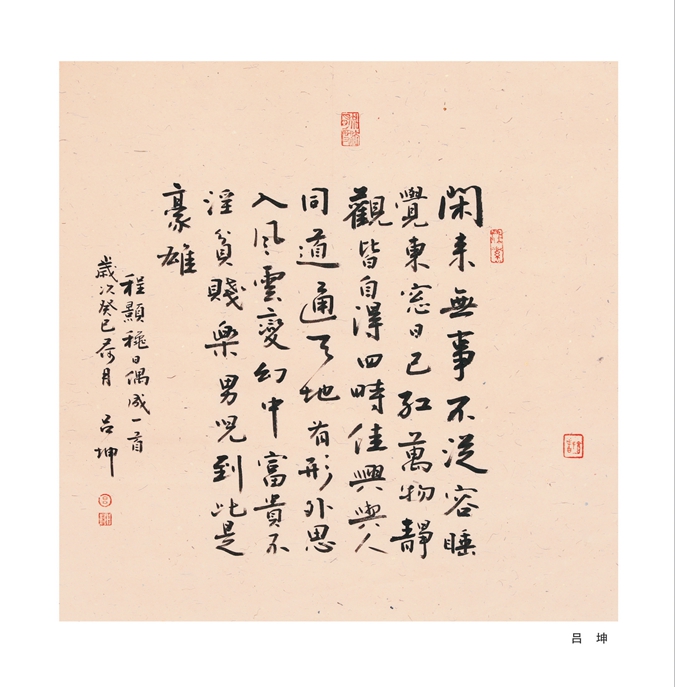 閑来無事不從容睡
覺東窓日已紅萬物靜
觀皆自得四時佳興與人
同道通天地有形外思
入風雲變幻中富貴不
淫貧賤樂男兒到此是
豪雄
程顥穐日偶成一首
歲次癸巳荷月 吕坤
吕 坤